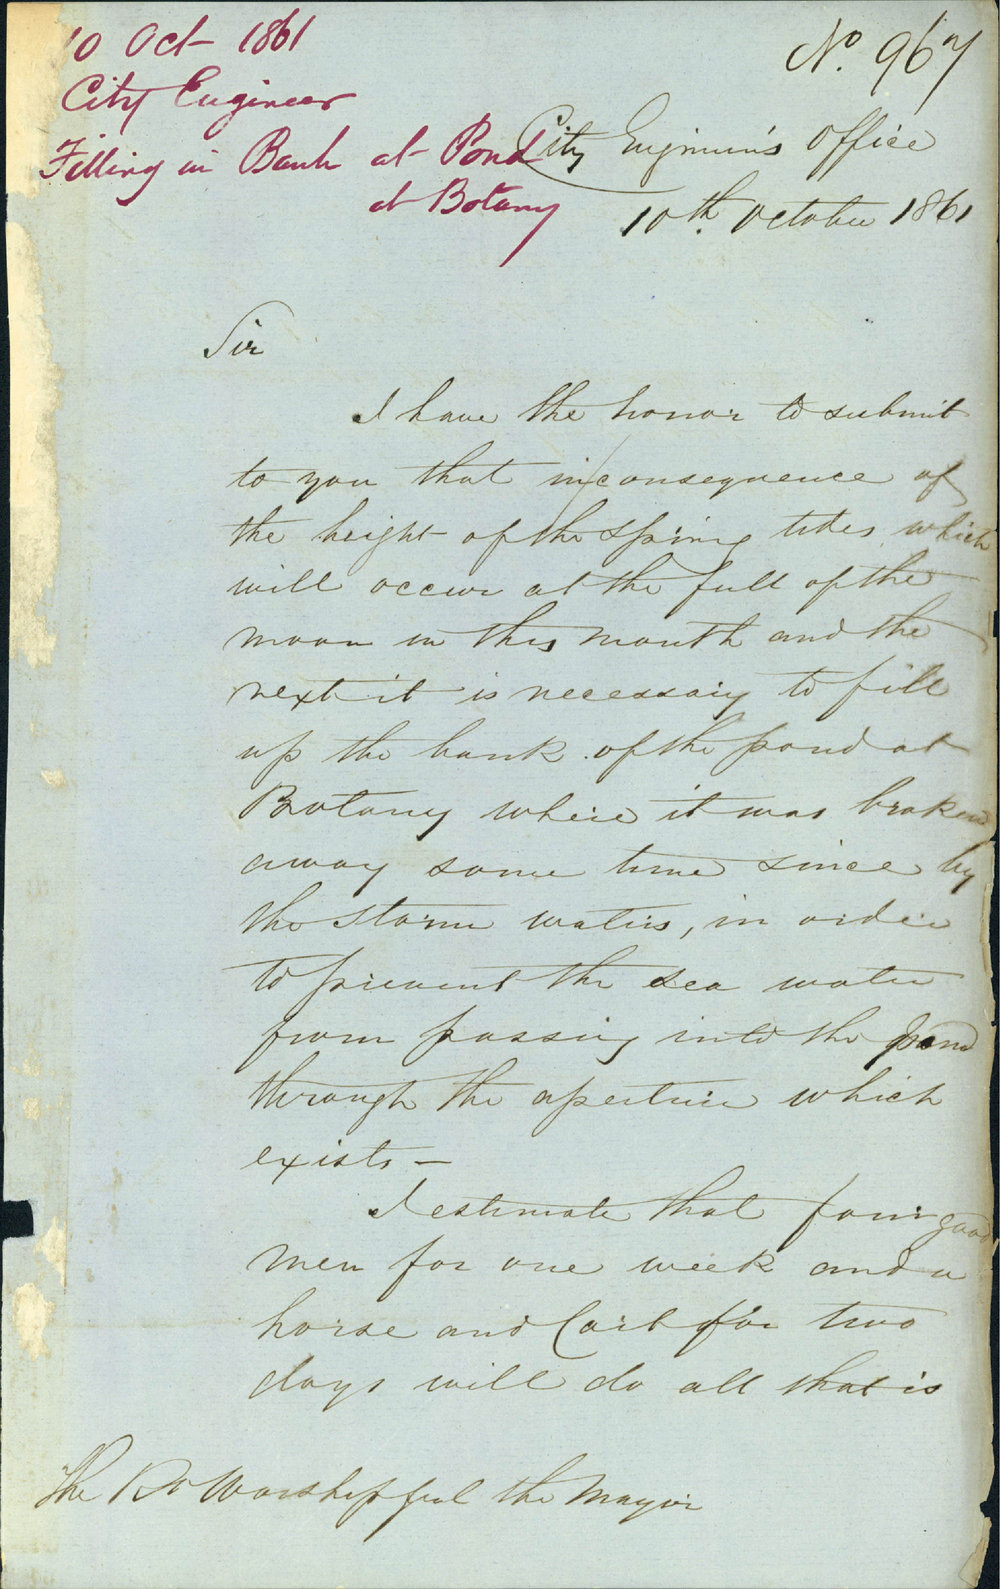 10 Oct 1861
City Engineer
Filling in Bank at Pond
at Botany
No. 967
City Engineer's Office
10th. October 1861
Sir
I have the honor to submit
to you that in/consequence of
the height of the Spring tides which
will occur at the full of the
moon in this month and the
next it is necessary to fill
up the bank of the pond at
Botany where it was broken
away some time since by
the Storm waters, in order
to prevent the sea water
from passing into the pond
through the aperture which
exists —
I estimate that four good
men for one week and a
horse and Cart for two
days will do all that is
The Rt Worshipful the Mayor